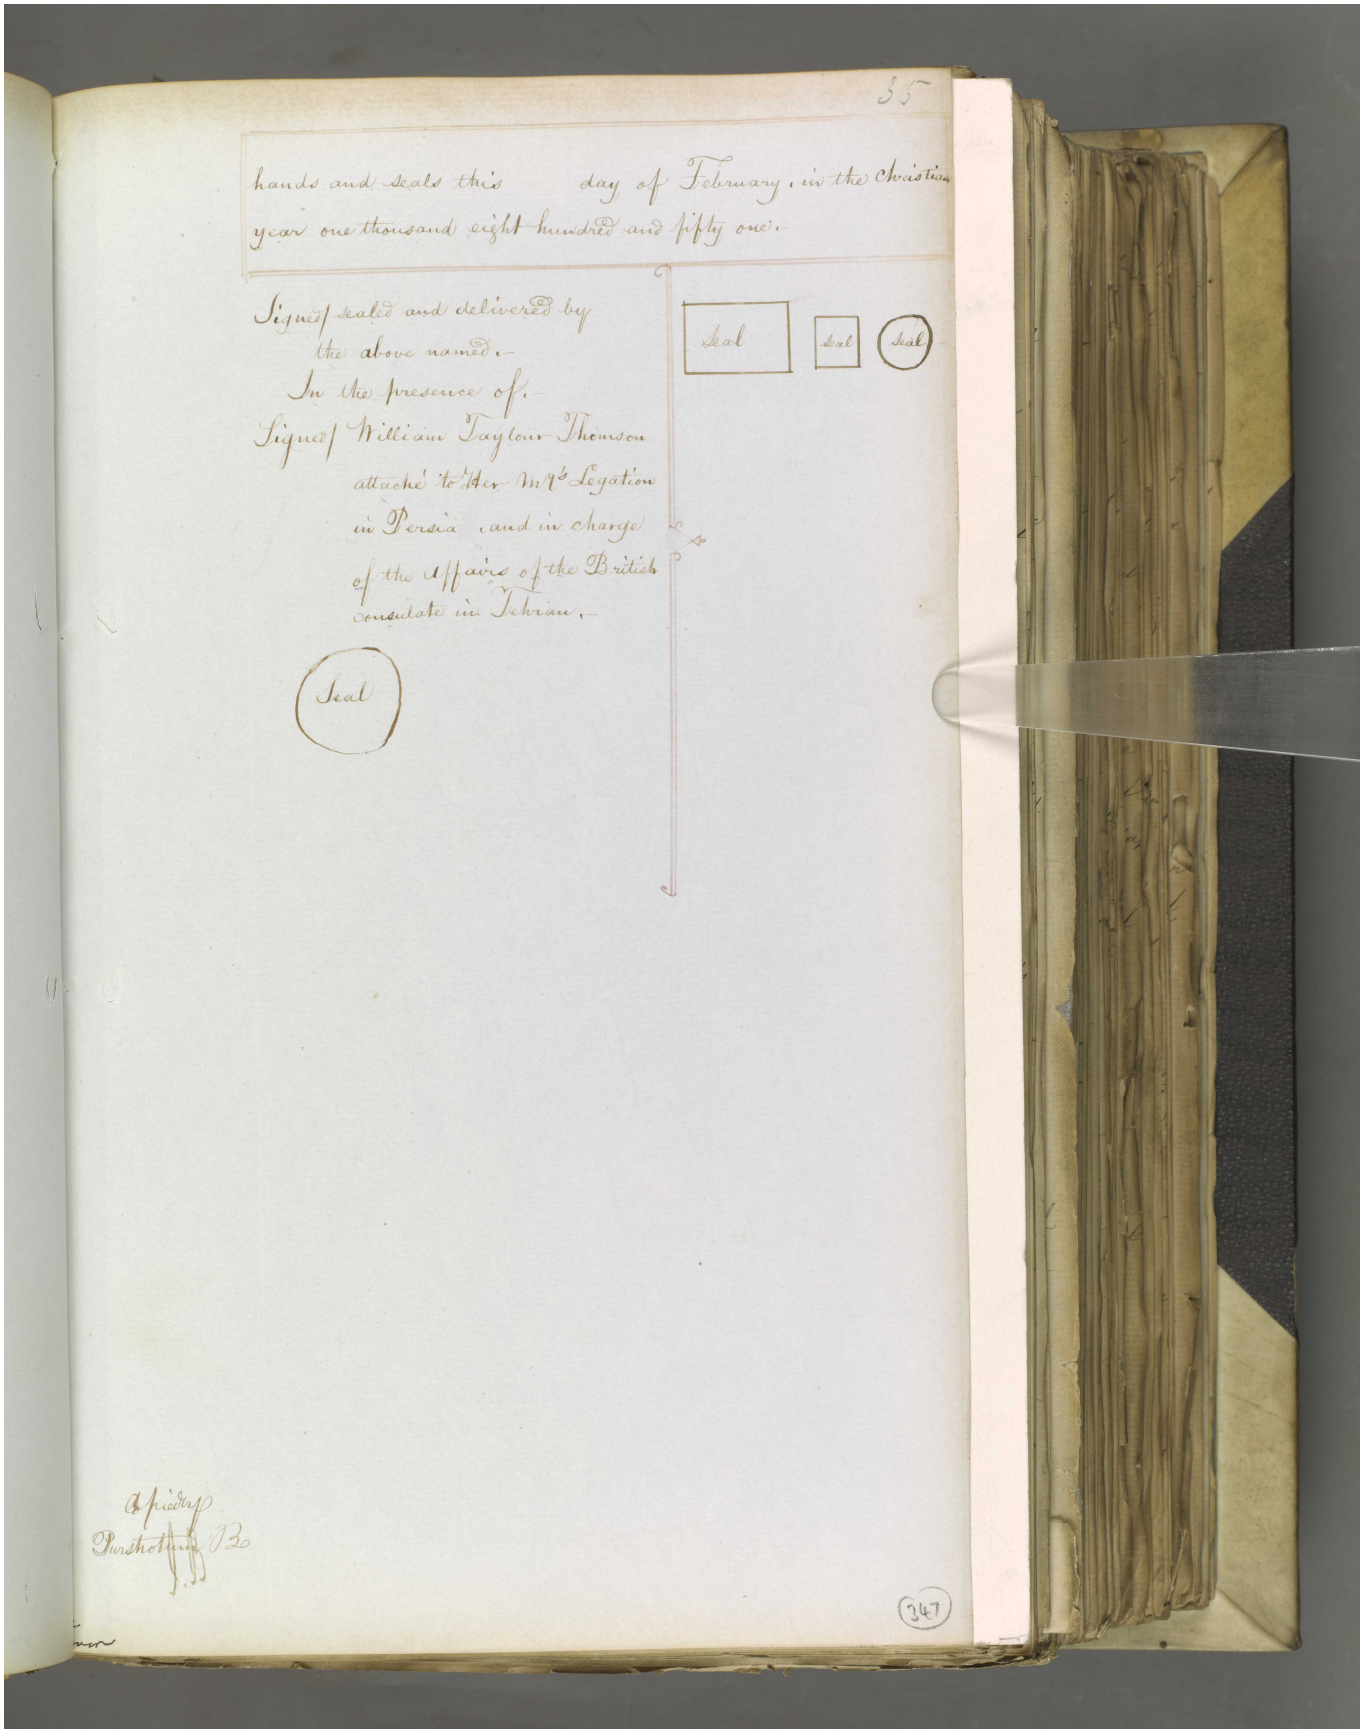 35
hands and seals this day of February, in the Christian
year one thousand eight hundred and fifty one.-
Signed/ sealed and delivered by
the above named.-
In the presence of.-
Seal
seal
seal
Signed/ William Taylour Thomson
attaché to Her My's Legation
in Persia, and in charge
of the affairs of the British
consulate in Tehran.-
Seal
Copied by
Purshotum B
347